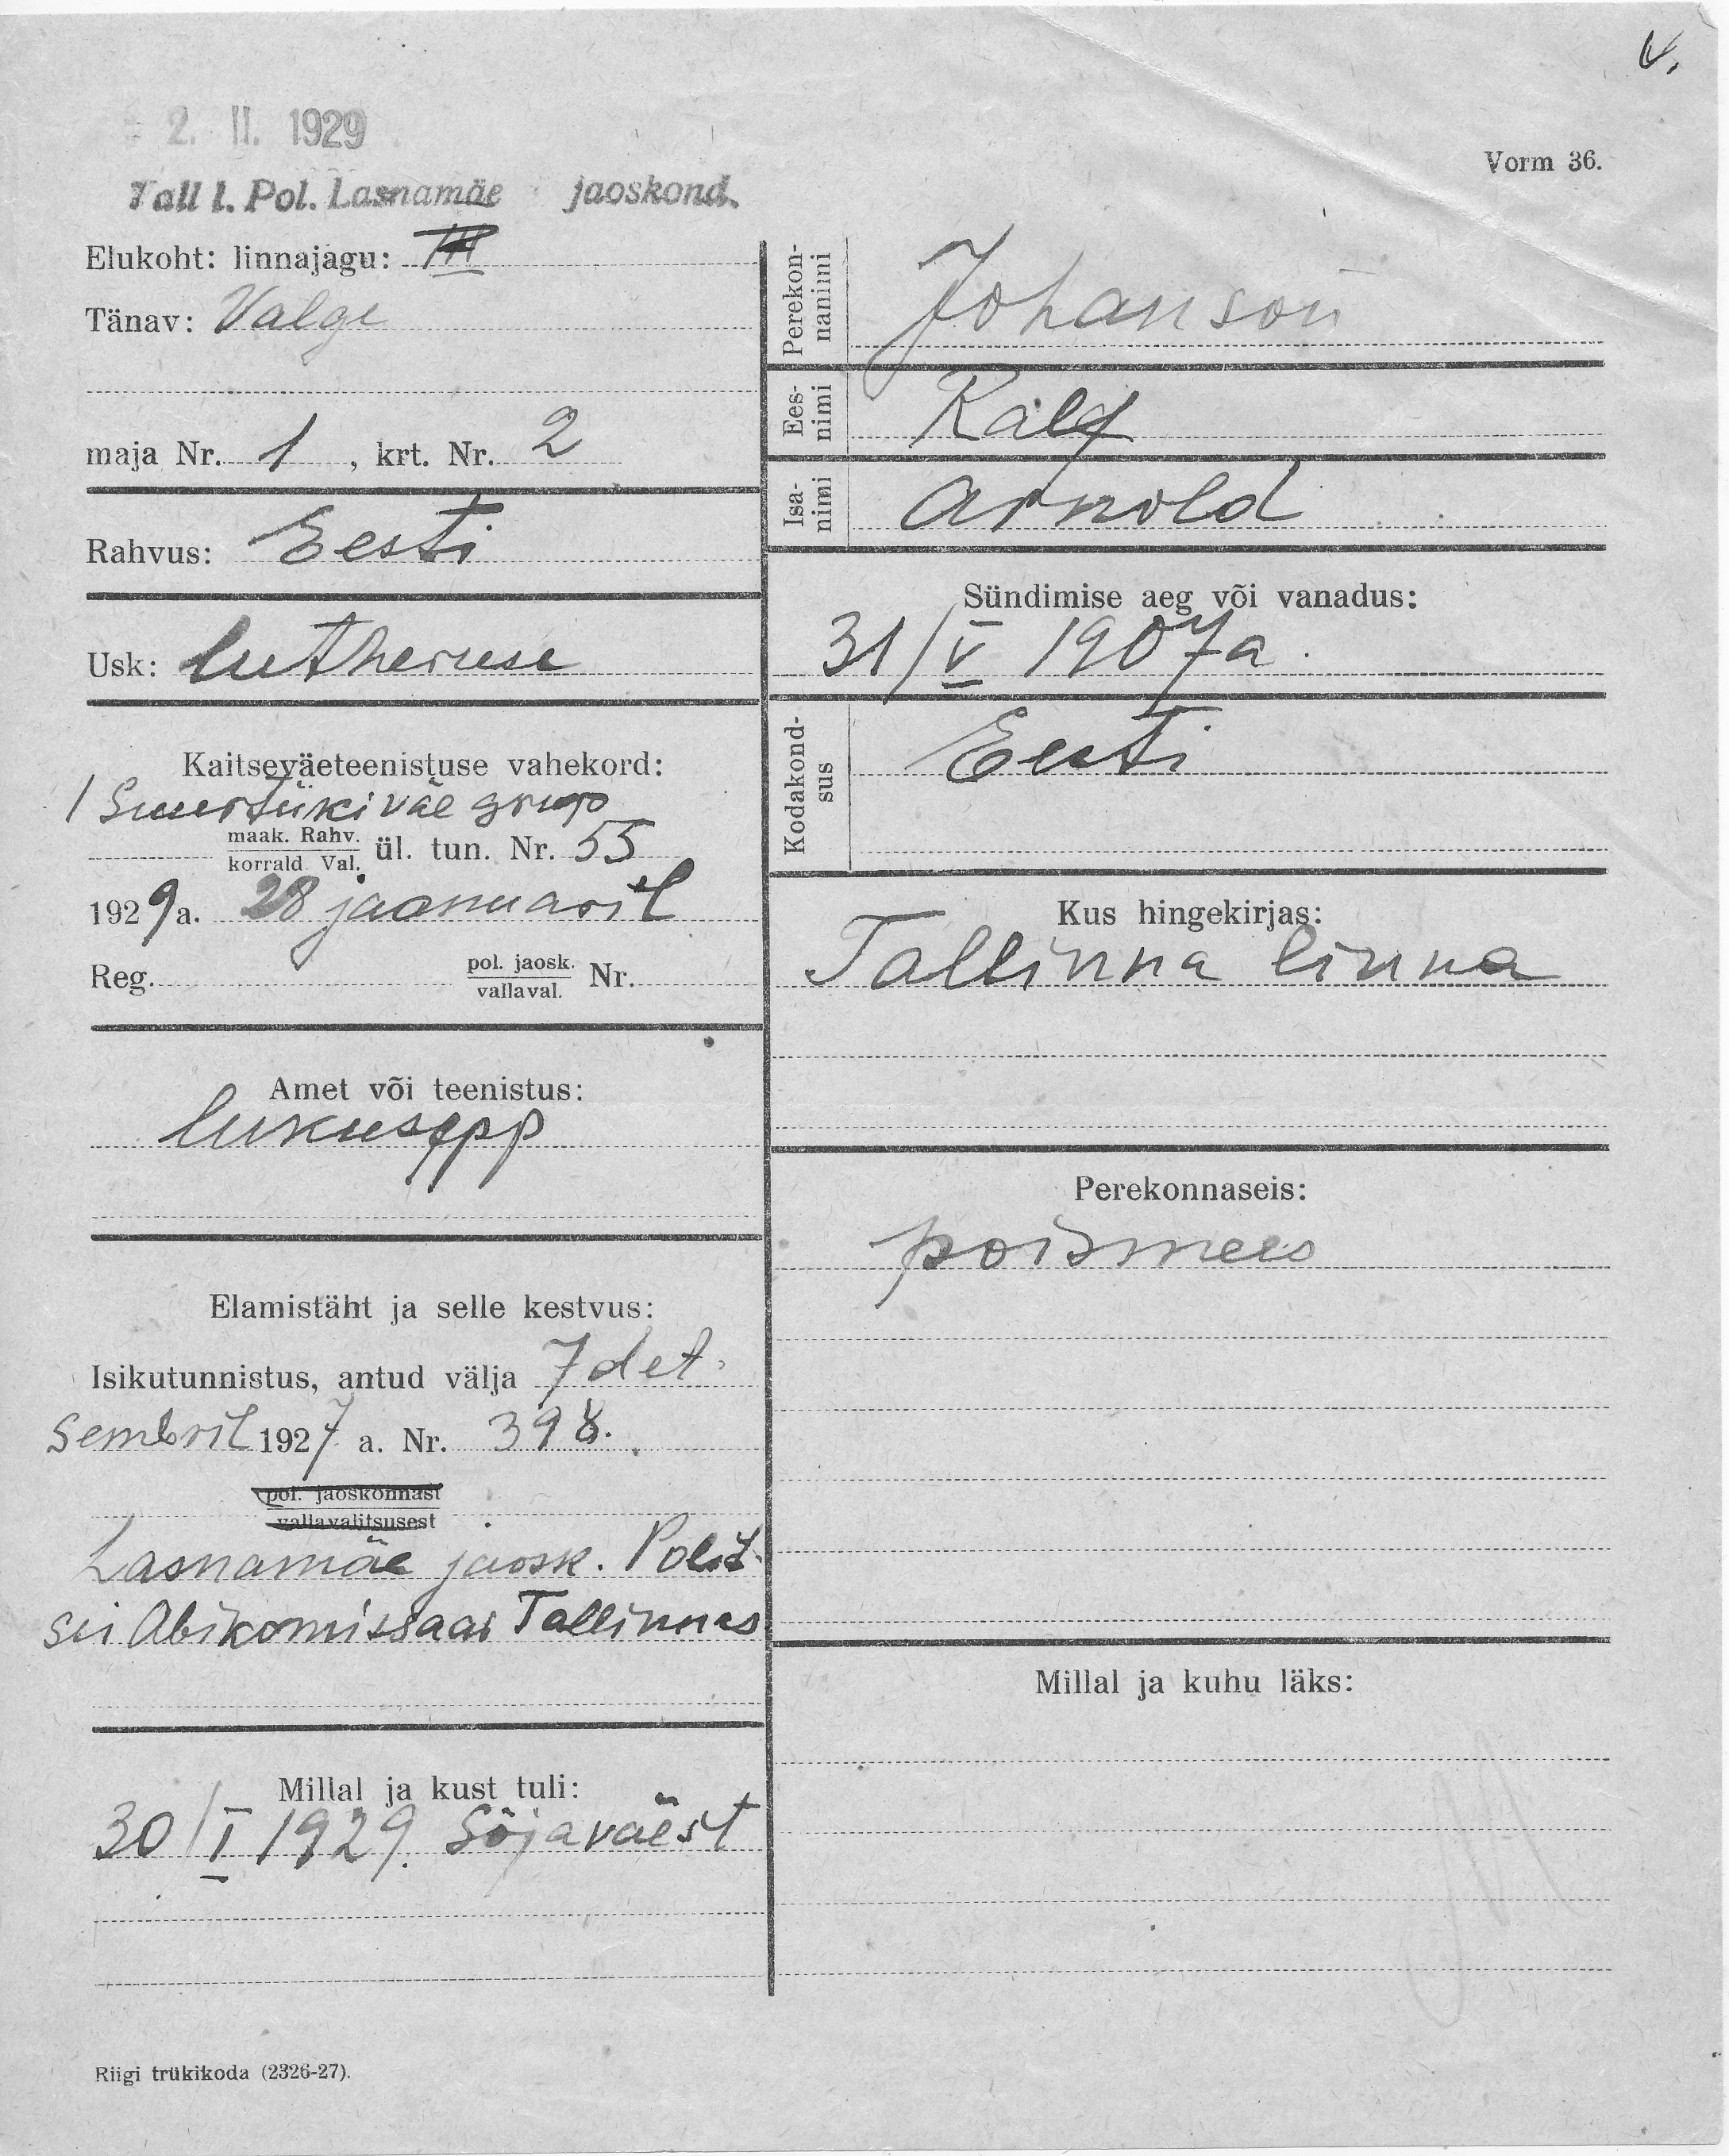 2. II. 1929
Tall l. Pol. Lasnamäe jaoskond.
Vorm 36.
Elukoht: linnajagu: III
Tänav: Valge
maja Nr. 1, krt. Nr. 2
Rahvus: Eesti
Usk: lutheruse
Kaitseväeteenistuse vahekord:
1 Suurtükiväe grup
maak. Rahv.
korrald. Val. ül. tun. Nr. 55
1929 a. 28 jaanuaril
Reg. pol. jaosk.
vallaval. Nr.
Amet või teenistus:
lukusepp
Elamistäht ja selle kestvus:
Isikutunnistus, antud välja 7 det-
sembril 1927 a. Nr. 398.
pol. jaoskonnast
vallavalitsusest
Lasnamäe jaosk. Polit-
sei Abikomissaar Tallinnas
Millal ja kust tuli:
30/I 1929. Sõjaväest
Perekon-
nanimi Johanson
Ees-
nimi Ralf
Isa-
nimi Arnold
Sündimise aeg või vanadus:
31/V 1907 a.
Kodakond-
sus Eesti
Kus hingekirjas:
Tallinna linna
Perekonnaseis:
poismees
Millal ja kuhu läks:
Riigi trükikoda (2326-27).